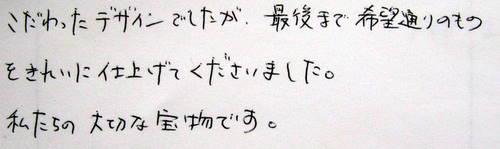 こだわったデザインでしたが、最後まで希望通りのもの
をきれいに仕上げてくださいました。
私たちの大切な宝物です。